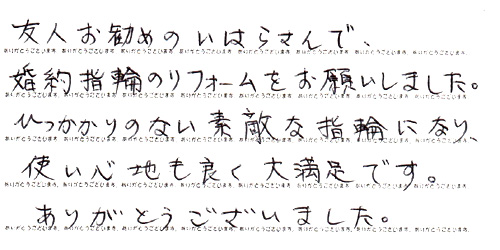 友人お勧めのいはらさんで、
婚約指輪のリフォームをお願いしました。
ひっかかりのない素敵な指輪になり、
使い心地も良く大満足です。
ありがとうございました。